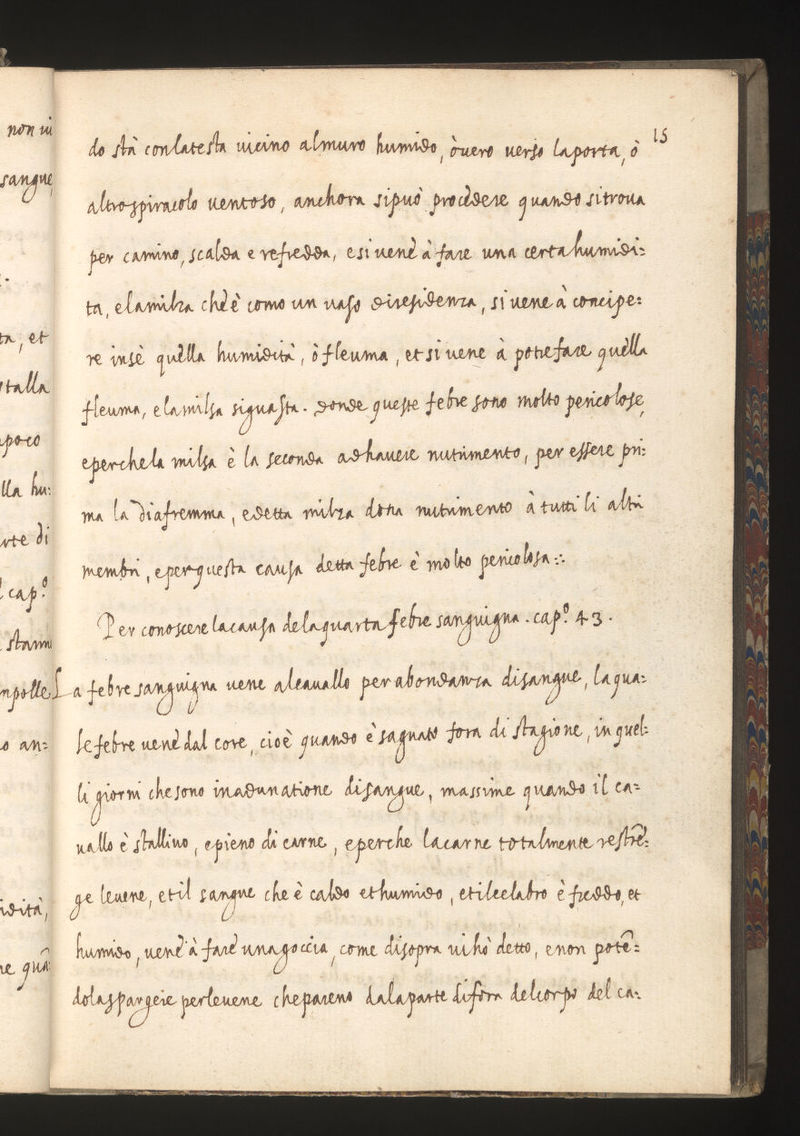 non ui
sangue,
ta, et
stalla
apoco
lla hu:
arte di
cap.º
stann
npolle
o an:
idità,
ne quã
15
do stà con la testa uicino al muro humido, ò uero uerso la porta, ò
altro spiracolo uentoso, anchora si può procedere quando si troua
per camino, scalda e refredda, e si uene à fare una certa humidi:
ta, e la milza che è como un uaso di residenza, si uene à concipe:
re in sè quella humidità, ò fleuma, et si uene à potrefare quella
fleuma, e la milsa si guasta. donde queste febre sono molto pericolose,
e perche la milsa è la seconda ad hauere nutrimento, per essere pri:
ma la Diafremma, e detta milza dona nutrimento à tutti li altri
membri, e per questa causa detta febre è molto pericolosa.:.
Per conoscere la causa de la quarta febre sanguigna. cap.º 43.
La febre sanguigna uene al cauallo per abondanza di sangue, la qua:
le febre uene dal core, cioè quando è sagnato fora di stagione, in quel:
li giorni che sono in adunatione di sangue, massime quando il ca:
uallo è stallino, e pieno di carne, e perche la carne totalmente restrẽ:
ge le uene, et il sangue che è caldo et humido, et il celabro è freddo, et
humido, uene à fare una goccia, come di sopra ui hò detto, e non potẽ:
dola spargere per le uene che pareno da la parte di fora del corpo del ca: